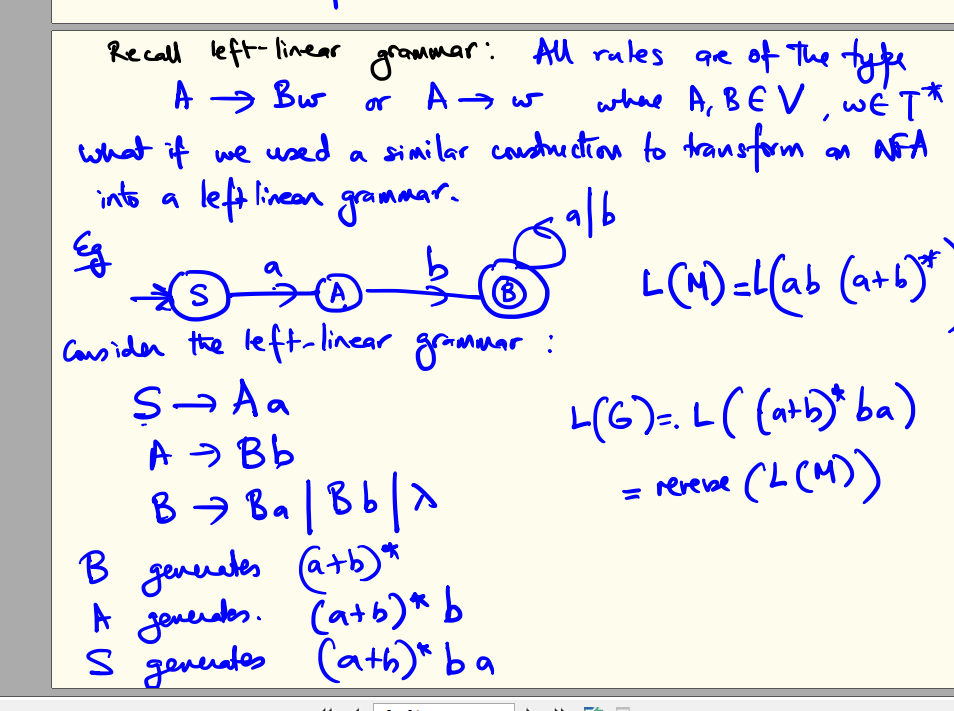 Recall left-linear grammar: All rules are of the type
A → Bw or A → w where A, B ∈ V, w ∈ T*
what if we used a similar construction to transform an NFA
into a leftlinear grammar.
Eg
a|b
S a A b B
L(M) = L(ab (a+b)*)
Consider the left-linear grammar :
S → Aa
L(G) =. L((a+b)* ba)
A → Bb
= reverse (L(M))
B → Ba | Bb | λ
B generates (a+b)*
A generates. (a+b)* b
S generates (a+b)* b a